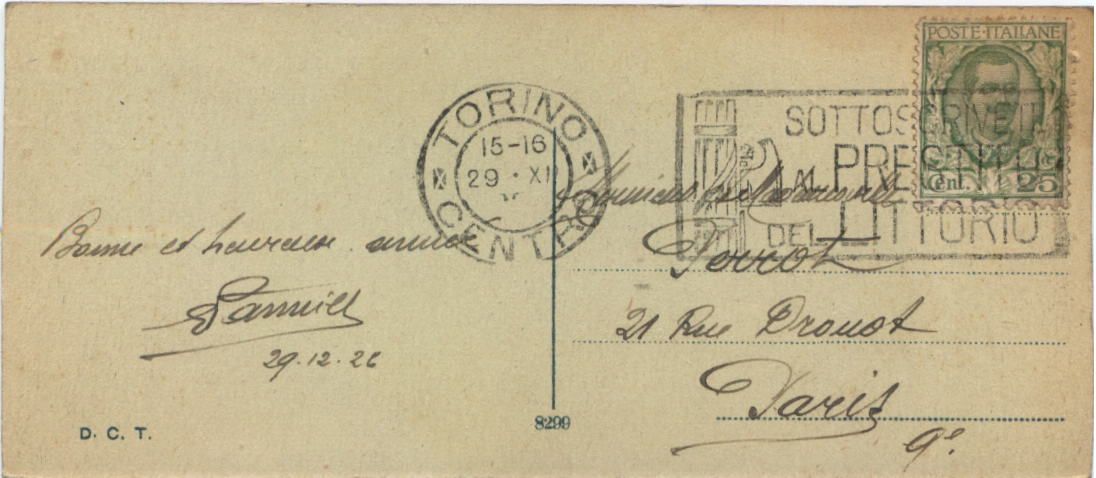 Bonne et heureuse année
29.12.26
D. C. T.
8299
TORINO
15-16
29 · XII
CENTRO
POSTE·ITALIANE
Cent. 25
SOTTOSCRIVETE
AL PRESTITO
DEL LITTORIO
Monsieur et Mademoiselle
Perrot
21 Rue Drouot
Paris
9e